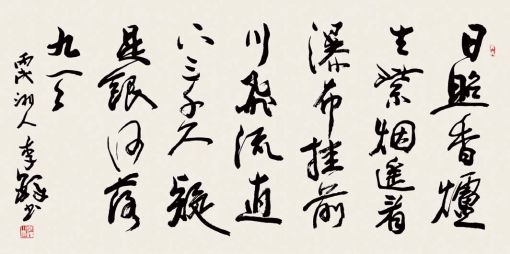 日照香爐
生紫烟遥看
瀑布挂前
川飛流直
下三千尺疑
是銀河落
九天
丙戌湘人李鐸书